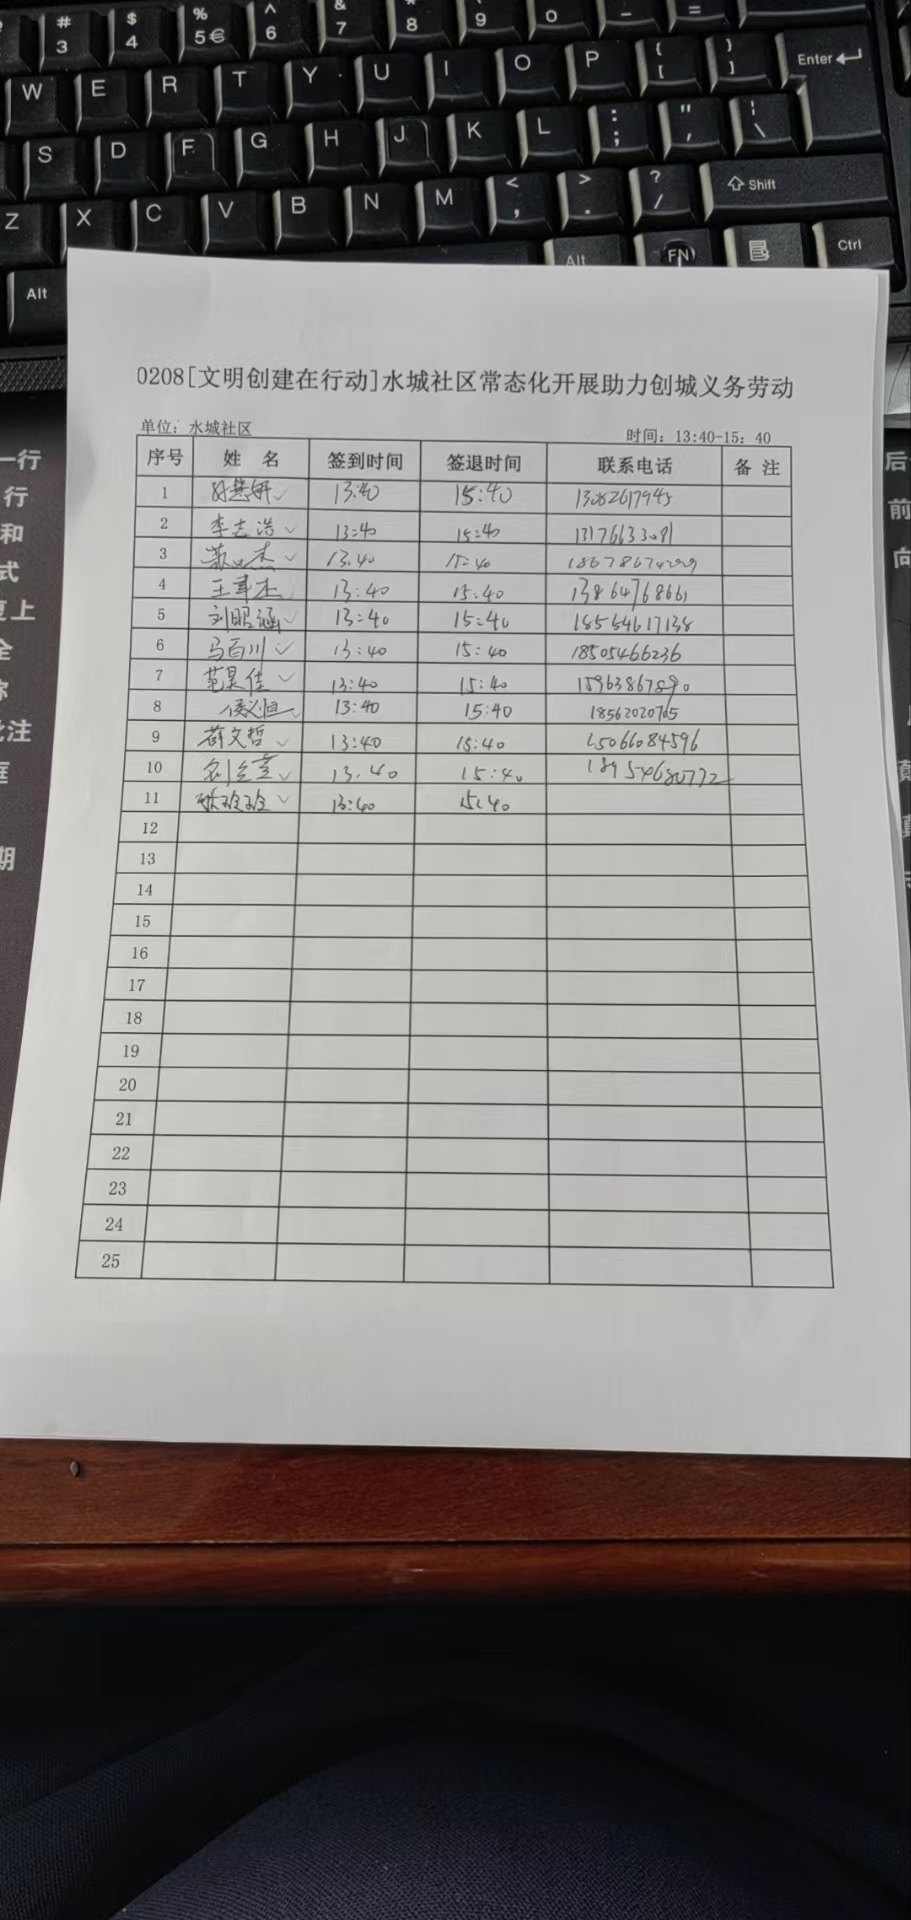 # 3
$ 4
% 5 €
^ 6
& 7
* 8
9
0
-
=
W E R T Y U I O P { [ } ] Enter
S D F G H J K L : ; " ' \
Z X C V B N M < , > . ? / Shift
Alt Alt FN Ctrl
0208[文明创建在行动]水城社区常态化开展助力创城义务劳动
单位：水城社区 时间：13:40-15：40
序号 姓 名 签到时间 签退时间 联系电话 备 注
1 13:40 15:40
2 李志浩 13:40 15:40 13176633091
3 13:40 15:40
4 13:40 15:40 13864768661
5 刘昭涵 13:40 15:40 18554617138
6 马百川 13:40 15:40 18505466236
7 范昊佳 13:40 15:40 15963867890
8 13:40 15:40 18562020705
9 薛文哲 13:40 15:40 15066084596
10 13:40 15:40 18954680772
11 13:40 15:40
12
13
14
15
16
17
18
19
20
21
22
23
24
25
一行
行
和
式
上
全
注
框
期
后
前
向